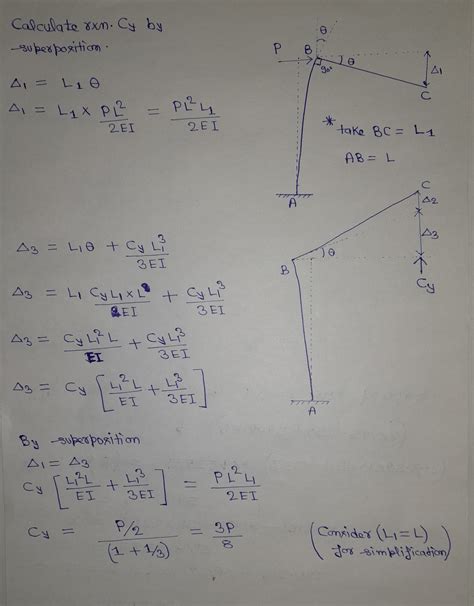 Calculate rxn. Cy by
superposition.
Δ1 = L1 θ
Δ1 = L1 × PL²/2EI = PL²L1/2EI
θ
P B θ
90°
Δ1
C
* take BC = L1
AB = L
A
C
Δ2
Δ3
Cy
B θ
A
Δ3 = L1θ + CyL1³/3EI
Δ3 = L1 CyL1×L/EI + CyL1³/3EI
Δ3 = CyL1²L/EI + CyL1³/3EI
Δ3 = Cy [L1²L/EI + L1³/3EI]
By superposition
Δ1 = Δ3
Cy [L1²L/EI + L1³/3EI] = PL²L1/2EI
Cy = P/2/(1 + 1/3) = 3P/8
(Consider (L1 = L)
for simplification)